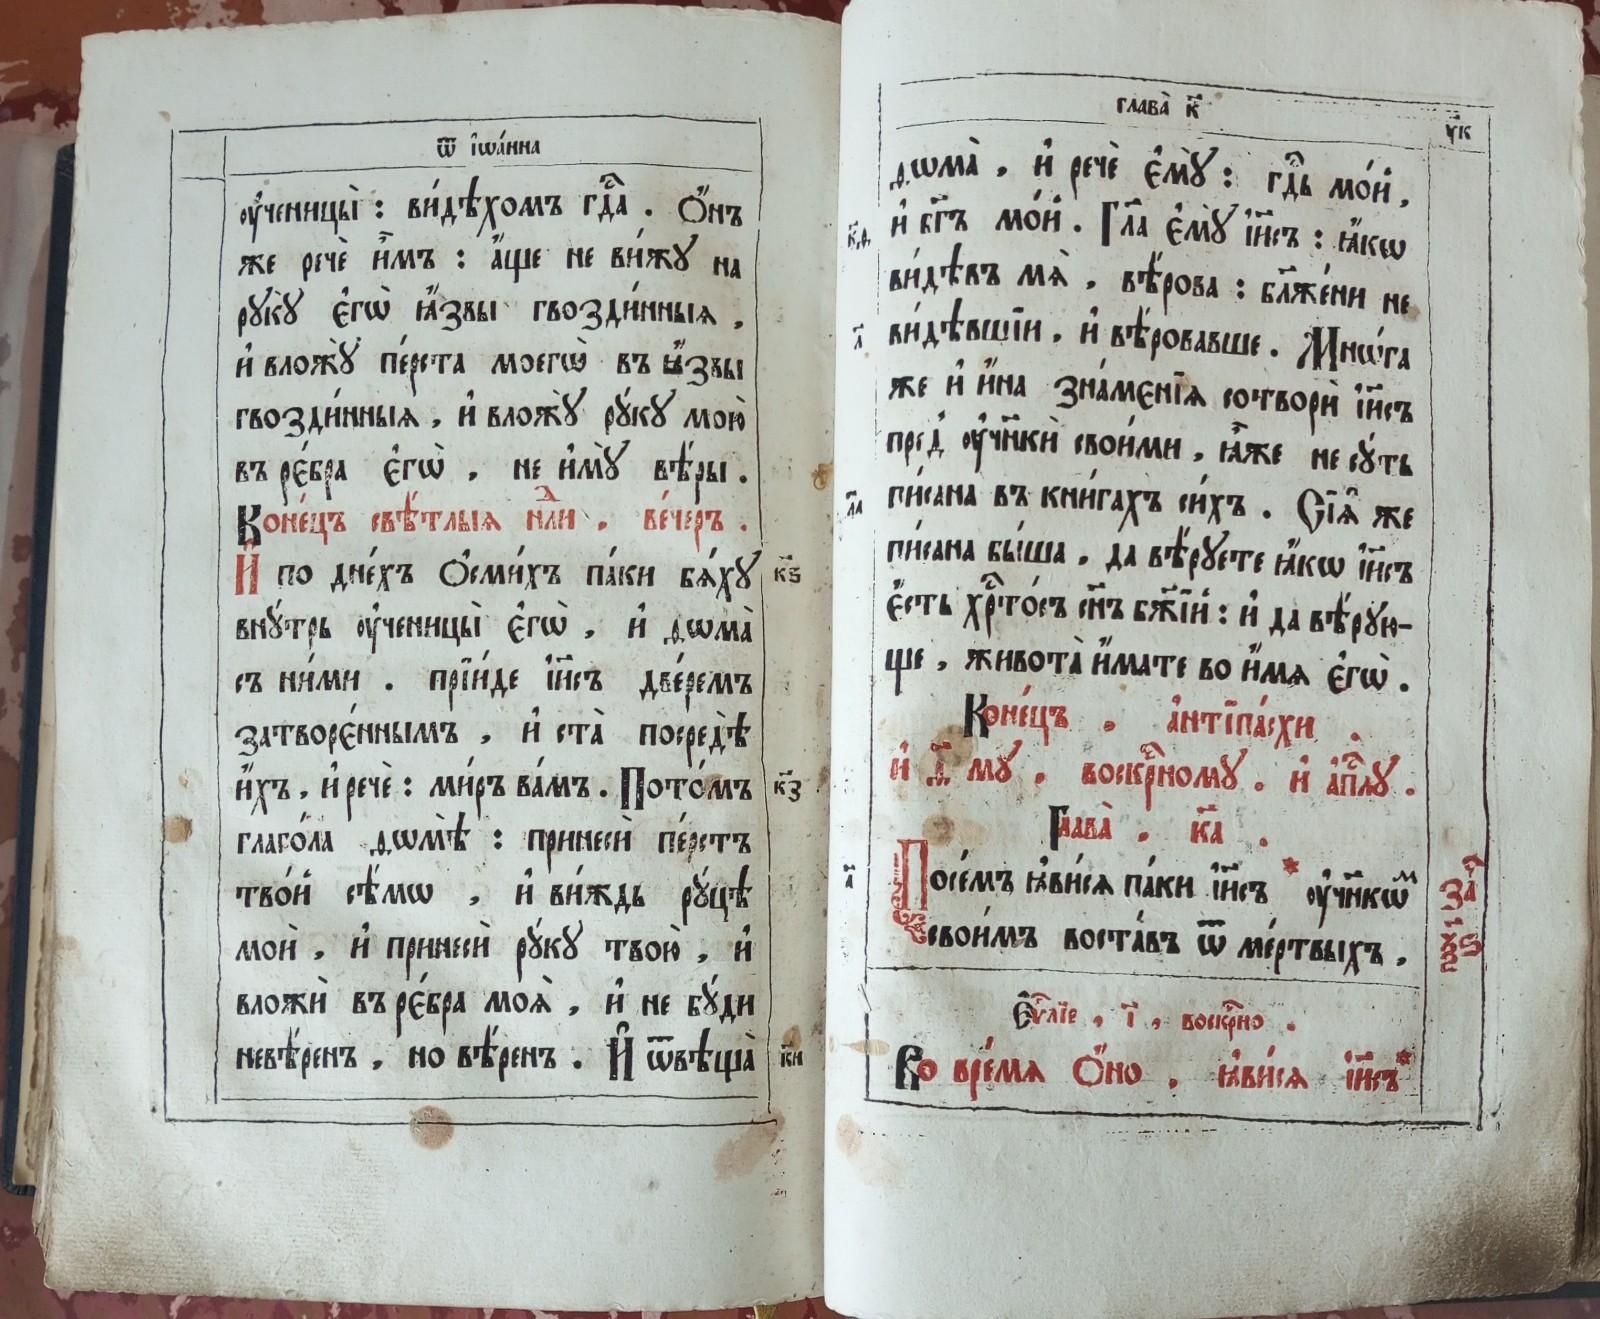 ѿ іѡа́нна
ᲂу҆ченицы̀ : ви́дѣхомъ гдⷭ҇а . Ѻ҆́нъ
же речѐ и҆̀мъ : а҆́ще не ви́жꙋ на
рꙋ̀кꙋ є҆гѡ̀ ꙗ҆́звы гвозди́нныѧ ,
и҆ вложꙋ̀ пе́рста моегѡ̀ въ ꙗ҆́звы
гвозди́нныѧ , и҆ вложꙋ̀ рꙋ́кꙋ мою̀
въ ре́бра є҆гѡ̀ , не и҆мꙋ̀ вѣ́ры .
Коне́цъ свѣ́тлыѧ нⷣли , ве́черъ .
И҆ по дне́хъ ѻ҆сми́хъ па́ки бѧ́хꙋ к҃ѕ
внꙋ́трь ᲂу҆ченицы̀ є҆гѡ̀ , и҆ ѳѡма̀
съ ни́ми . прїи́де і҆и҃съ две́ремъ
затворе́ннымъ , и҆ ста̀ посредѣ̀
и҆́хъ , и҆ речѐ : ми́ръ ва́мъ . Пото́мъ к҃з
глаго́ла ѳѡмѣ̀ : принесѝ пе́рстъ
тво́й сѣ́мѡ , и҆ ви́ждь рꙋ́цѣ
моѝ , и҆ принесѝ рꙋ́кꙋ твою̀ , и҆
вложѝ въ ре́бра моѧ̀ , и҆ не бꙋ́ди
невѣ́ренъ , но вѣ́ренъ . И҆ ѿвѣща̀ к҃и
глава̀ к҃
ѵ҃к
ѳѡма̀ , и҆ речѐ є҆мꙋ̀ : гдⷭ҇ь мо́й ,
к҃ѳ и҆ бг҃ъ мо́й . Гл҃а є҆мꙋ̀ і҆и҃съ : ꙗ҆́кѡ
ви́дѣвъ мѧ̀ , вѣ́рова : бл҃же́ни не
л҃ ви́дѣвшїи , и҆ вѣ́ровавше . Мнѡ́га
же и҆ и҆́на зна́менїѧ сотворѝ і҆и҃съ
пред̾ ᲂу҆чн҃ки̑ свои́ми , ꙗ҆̀же не сꙋ́ть
л҃а пи́сана въ кни́гахъ си́хъ . Сїѧ̑ же
пи́сана бы́ша , да вѣ́рꙋете ꙗ҆́кѡ і҆и҃съ
є҆́сть хрⷭ҇то́съ сн҃ъ бж҃їй : и҆ да вѣ́рꙋю-
ще , живота̀ и҆́мате во и҆́мѧ є҆гѡ̀ .
Коне́цъ , а҆нтїпа́схи .
и҆ д҃ мꙋ , воскрⷭ҇номꙋ . и҆ а҆пⷭ҇лꙋ .
Глава̀ , к҃а .
а҃ Посе́мъ ꙗ҆ви́сѧ па́ки і҆и҃съ * ᲂу҆чн҃кѡⷨ заⷱ҇
свои́мъ воста́въ ѿ ме́ртвыхъ , ѯ҃ѕ
Є҆ѵⷢ҇лїе , і҃ , воскрⷭ҇но .
Во вре́мѧ ѻ҆́но , ꙗ҆ви́сѧ і҆и҃съ *